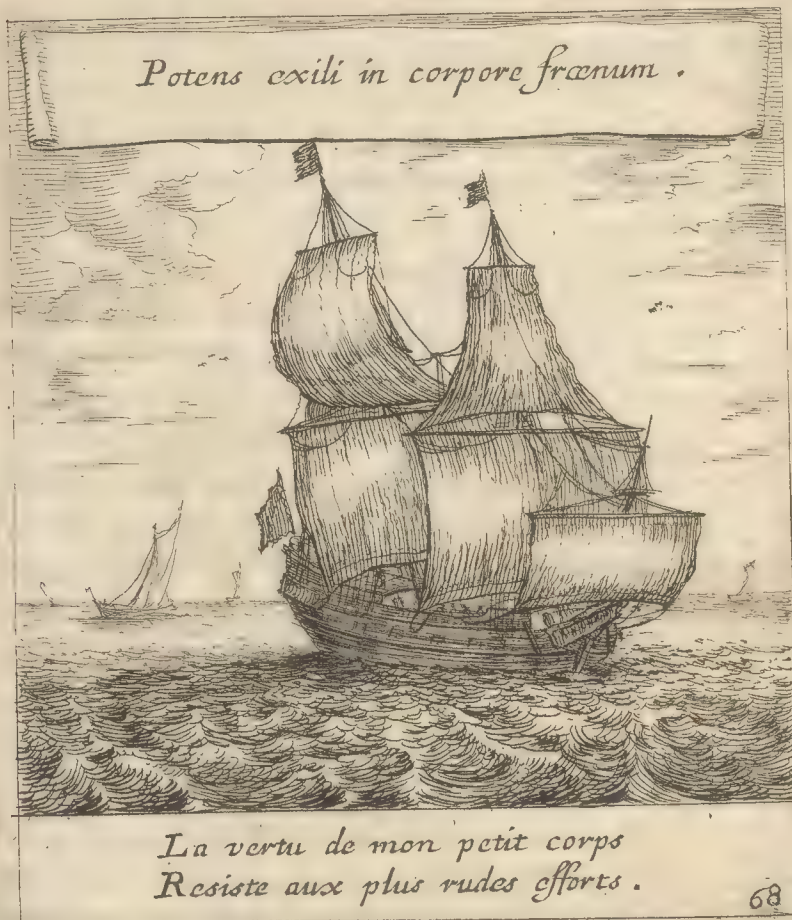 Potens exili in corpore frœnum .
La vertu de mon petit corps
Resiste aux plus rudes efforts .
68